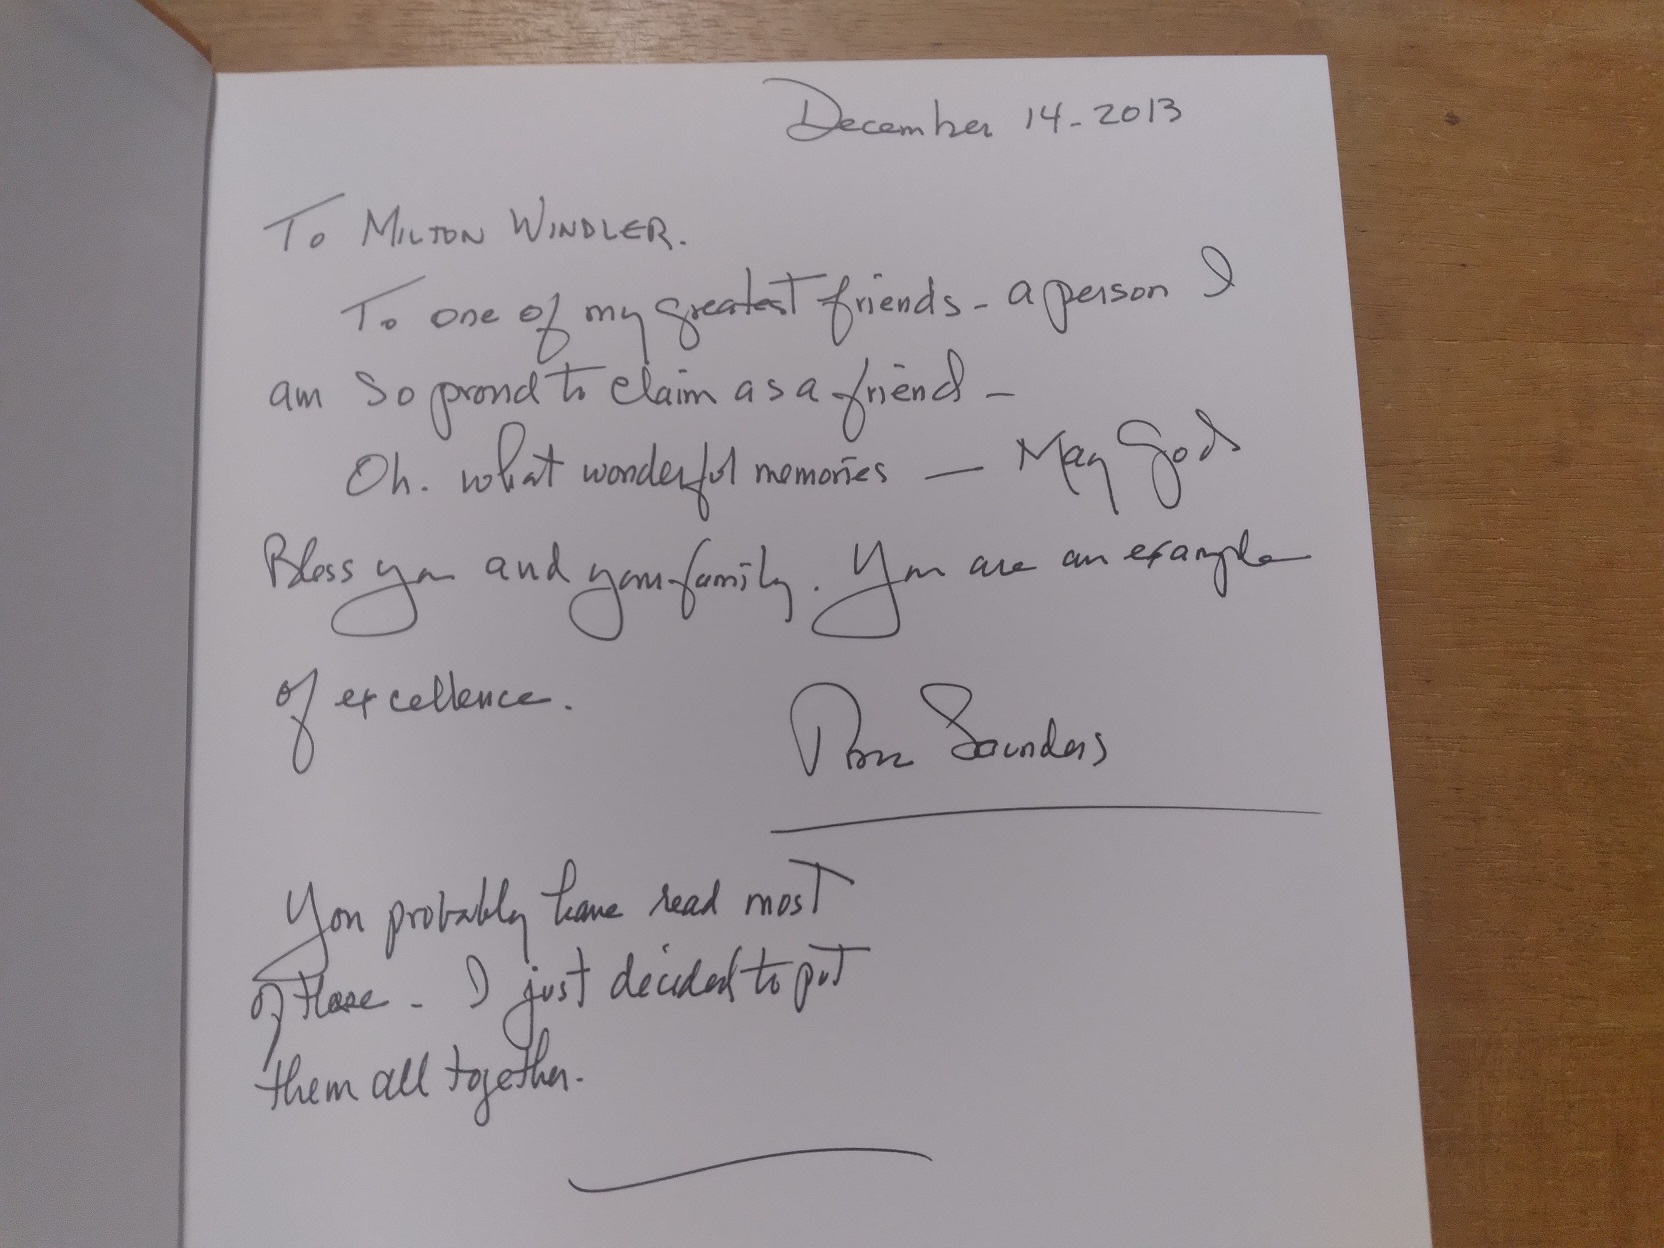 December 14-2013
To Milton Windler.
To one of my greatest friends - a person I
am so proud to claim as a friend -
Oh. what wonderful memories — May God
Bless you and your family. You are an example
of excellence.
Saunders
You probably have read most
of these - I just decided to put
them all together.